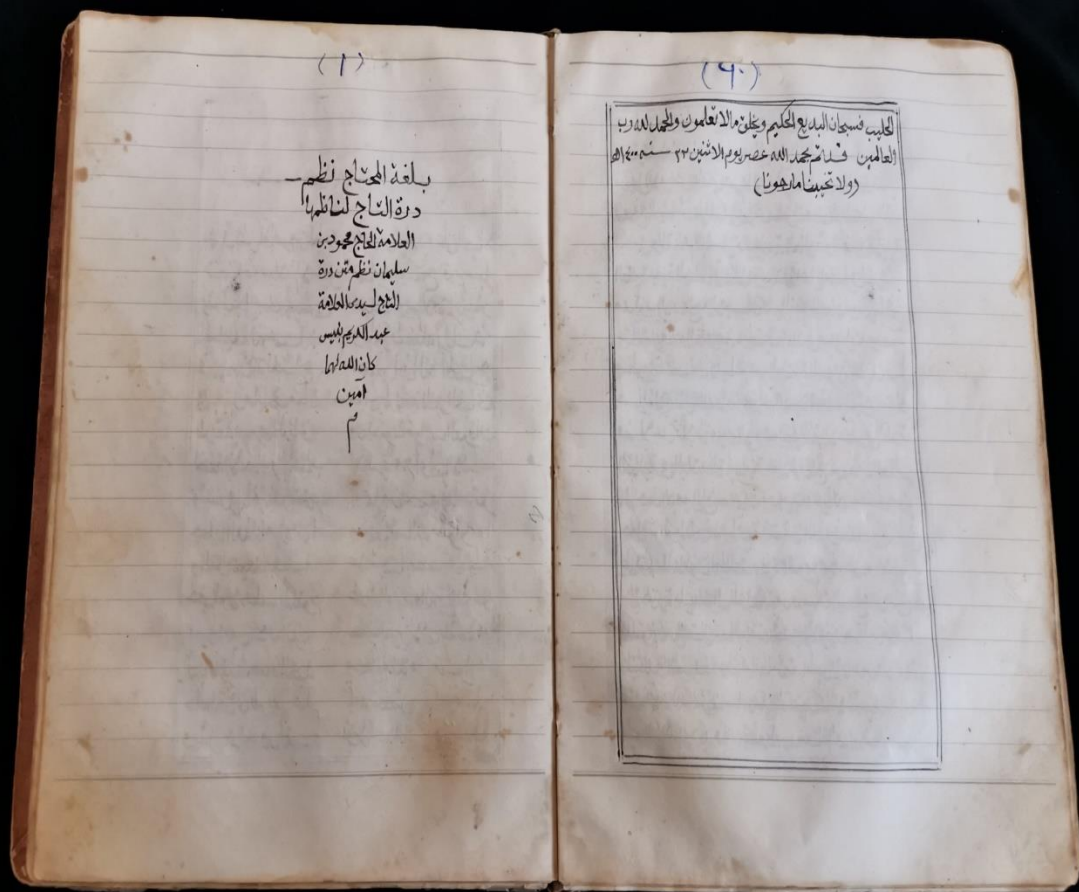 (٦٠)
الحليب فسبحان البديع الحكيم ويخلق مالا تعلمون والحمد لله رب
العالمين قد تم بحمد الله عصر يوم الاثنين ٢٢ سنه ١٤٠٠ھ
(ولا تخيبنا مارجونا)
(١)
بلغة المحتاج نظم
درة التاج لناظمها
العلامة الحاج محمود بن
سليمان نظم متن درة
التاج لسيدى العلامة
عبد الكريم بليس
كان الله لهما
آمين
م